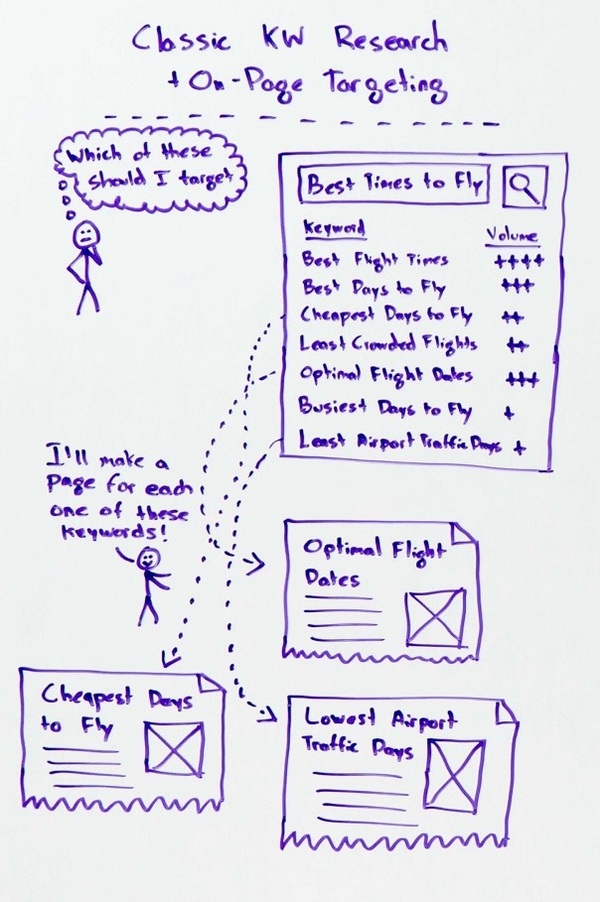 Classic KW Research
+ On-Page Targeting
Which of these
should I target
Best Times to Fly
Keyword Volume
Best Flight Times ++++
Best Days to Fly +++
Cheapest Days to Fly ++
Least Crowded Flights ++
Optimal Flight Dates +++
Busiest Days to Fly +
Least Airport Traffic Days +
I'll make a
Page for each
one of these
keywords!
Optimal Flight
Dates
Cheapest Days
to Fly
Lowest Airport
Traffic Days